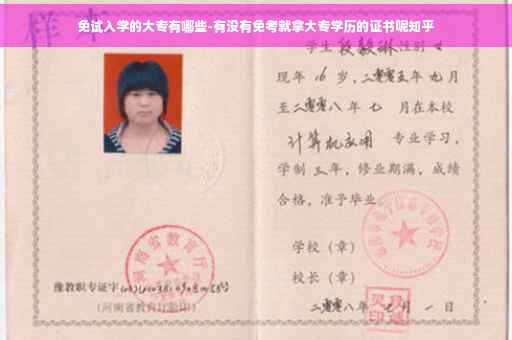 免试入学的大专有哪些-有没有免考就拿大专学历的证书呢知乎
样本
学生段毅琳性别女
现年16岁,二零零五年九月
至二零零八年七 月在本校
计算机应用 专业学习,
学制三年,修业期满,成绩
合格,准予毕业
学校(章)
校长(章)
二零零八年七月一日
河南省教育厅
豫教职专证字
(河南省教育厅验印)